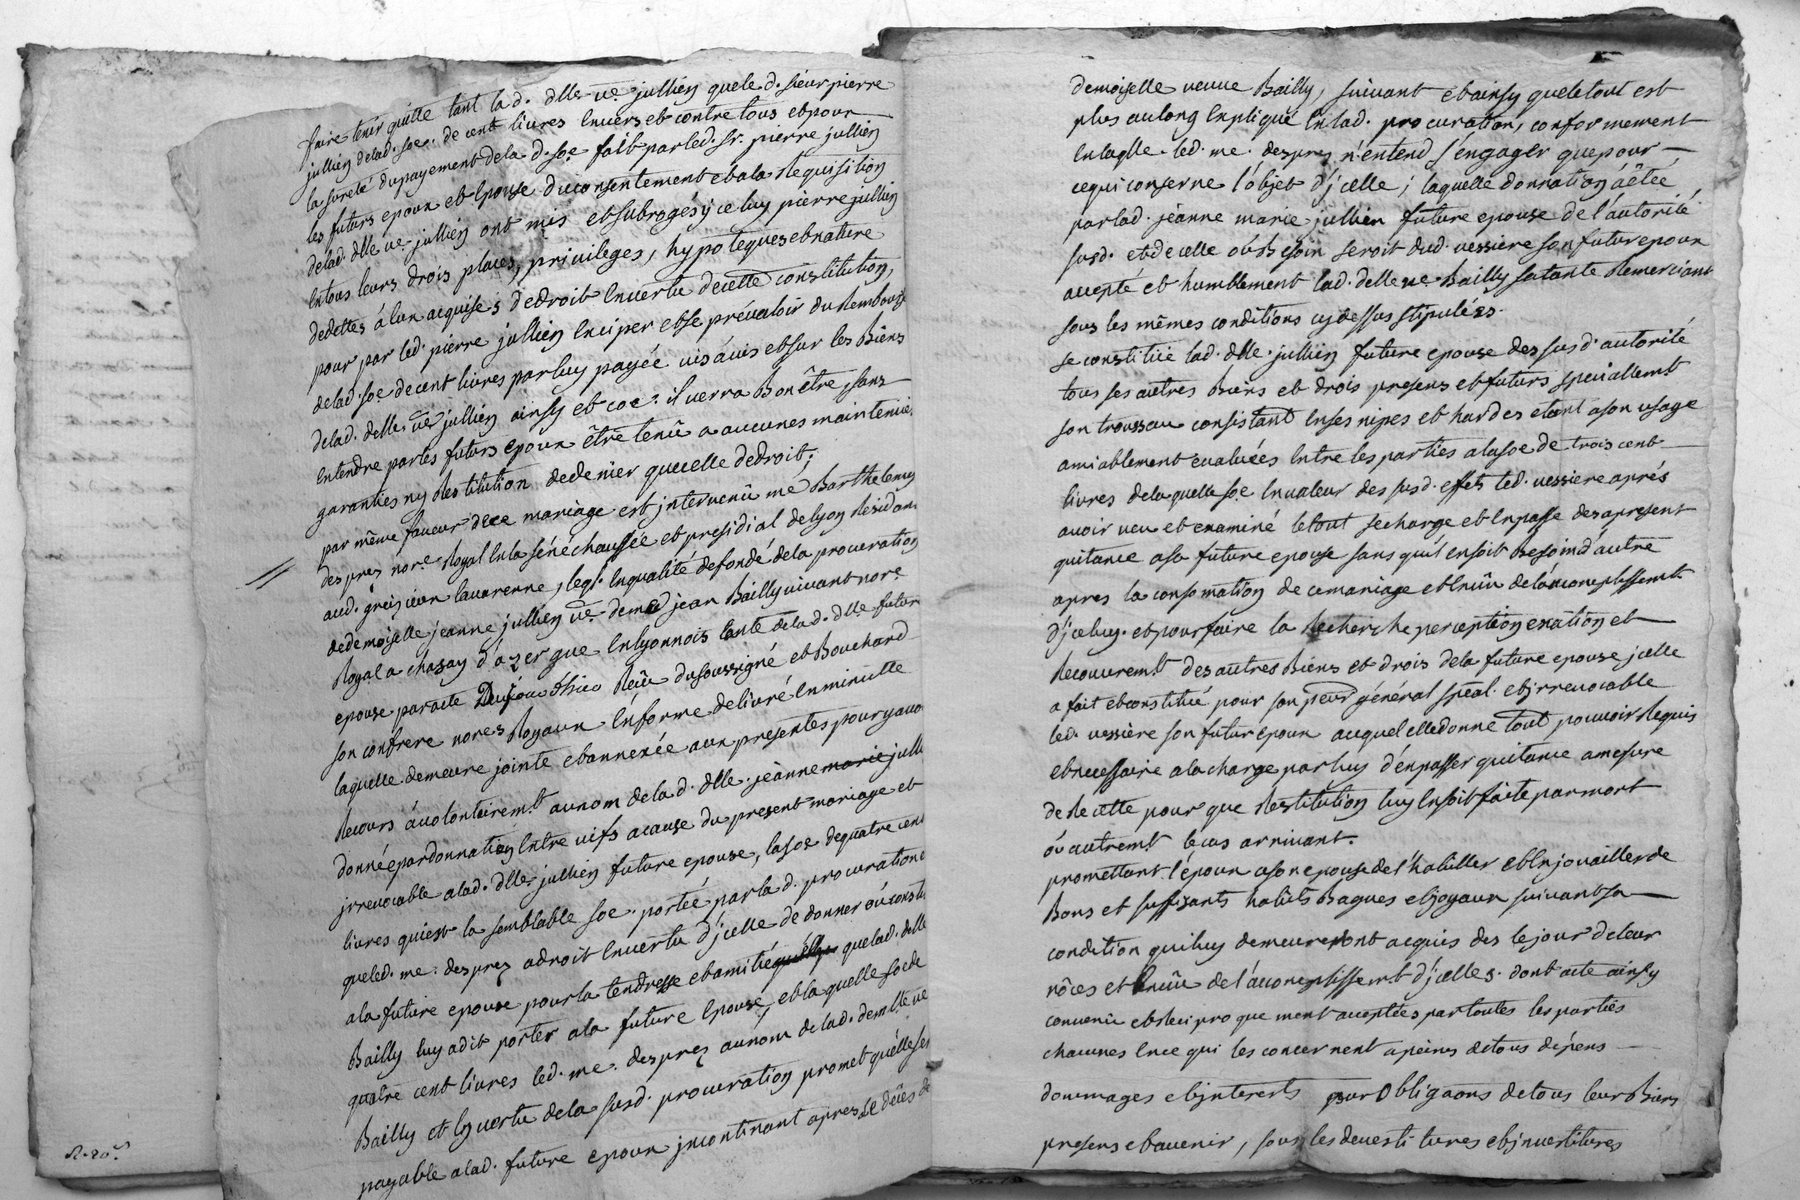 faire tenir quitte tant lad. dlle. ve. jullien que led. sieur pierre
jullien de lad. soe. de cent livres envers et contre tous et pour
la sureté du payement de la d. soe fait par led. sr. pierre jullien
les futurs epoux et Epouse du consentement et a la Requisition
de lad. dlle ve. jullien ont mis et subrogés yceluy pierre jullien
en tous leurs drois places, privileges, hypoteques et nature
de dettes à lun acquises de droit En vertu de cette constitution,
pour par led. pierre jullien Enciper et se prévaloir du Rembours
de lad. soe de cent livres par luy payée vis à vis et sur les Biens
de lad. delle. ve jullien ainsy et coe. il verra Bon être sans
Entendre par les futurs epoux être tenû a aucunes maintenüe
garanties ny Restitution de denier que celle de droit;
par même faveur de ce mariage est jntervenû me Barthelemy
desprez nore. Royal En la sénéchaussée et presidial de lyon Résidant
aud. lavarenne, leql. En qualité de fondé de la procuration
de demoiselle jeanne jullien ve. de me jean Bailly vivant nore.
Royal a chasay d'azergue En lyonnois tante de la d. dlle. future
epouse par acte Reçû du soussigné et Bouchard
son confrere nores Royaux En forme delivré En minutte
laquelle demeure jointe et annexée aux presentes pour y avoir
Recours à volontairemt. au nom de la d. dlle. jeanne marie jullien
donné par donnation Entre vifs a cause du present mariage et
jrrevocable a lad. dlle jullien future epouse, la soe de quatre cent
livres qui est la semblable soe. portée par la d. procuration
que led. me. desprez a droit En vertu d'jcelle de donner où constituer
a la future epouse pour la tendresse et amitié que lad. delle
Bailly luy a dit porter a la future Epouse, et la quelle soe de
quatre cent livres led. me. desprez au nom de lad. demlle. ve
Bailly et En vertu de la susd. procuration promet qu'elle sera
payable a lad. future epoux jncontinant apres le dèces de
demoiselle veuve Bailly, suivant et ainsy que le tout est
plus au long Expliqué En lad. procuration, conformement
En laqlle led. me. desprez n'entend s'engager que pour
ce qui conserne l'objet d'jcelle; laquelle donnation à êtée
par lad. jeanne marie jullien future epouse de l'autorité
susd. et de celle où Besoin seroit dud. vessiere son futur epoux
accepté et humblement lad. delle ve. Bailly sa tante Remerciant
sous les mêmes conditions cy dessus stipulées.
se constitüe lad. dlle. jullien future epouse des susd. autorité
tous ses autres Biens et drois presens et futurs speciallemt
son trousseau consistant En ses nipes et hardes etant a son usage
amiablement evaluées Entre les parties a la soe de trois cent
livres de la quelle soe. En valeur des susd. effets led. vessiere aprés
avoir veu et examiné le tout se charge et En passe des apresent
quitance a sa future epouse sans qu'il En soit Besoin d'autre
apres la consomation de ce mariage et En sûite de l'acomplissemt.
d'jceluy. et pour faire la Recherche perception exation et
Recouvremt. des autres Biens et drois de la future epouse jcelle
a fait et constitué pour son procr général spéal. et jrrevocable
led. vessière son futur epoux auquel elle donne tout pouvoir Requis
et necessaire a la charge par luy d'en passer quitance a mesure
de Recette pour que Restitution luy En soit faite par mort
où autremt. le cas arrivant.
promettant l'époux a son epouse de l'habiller et Enjouailler de
Bons et suffisants habits Bagues et joyaux suivant sa
condition qui luy demeureront acquis des le jour de leur
nôces et Ensuite de l'acomplissemt d'jcelles. dont acte ainsy
convenû et Reciproquement acceptées par toutes les parties
chacunes En ce qui les concernent a peines de tous dépens
dommages et jnterests par obligaons de tous leurs Biens
presens et avenir, sous les devestitures et jnvestitures